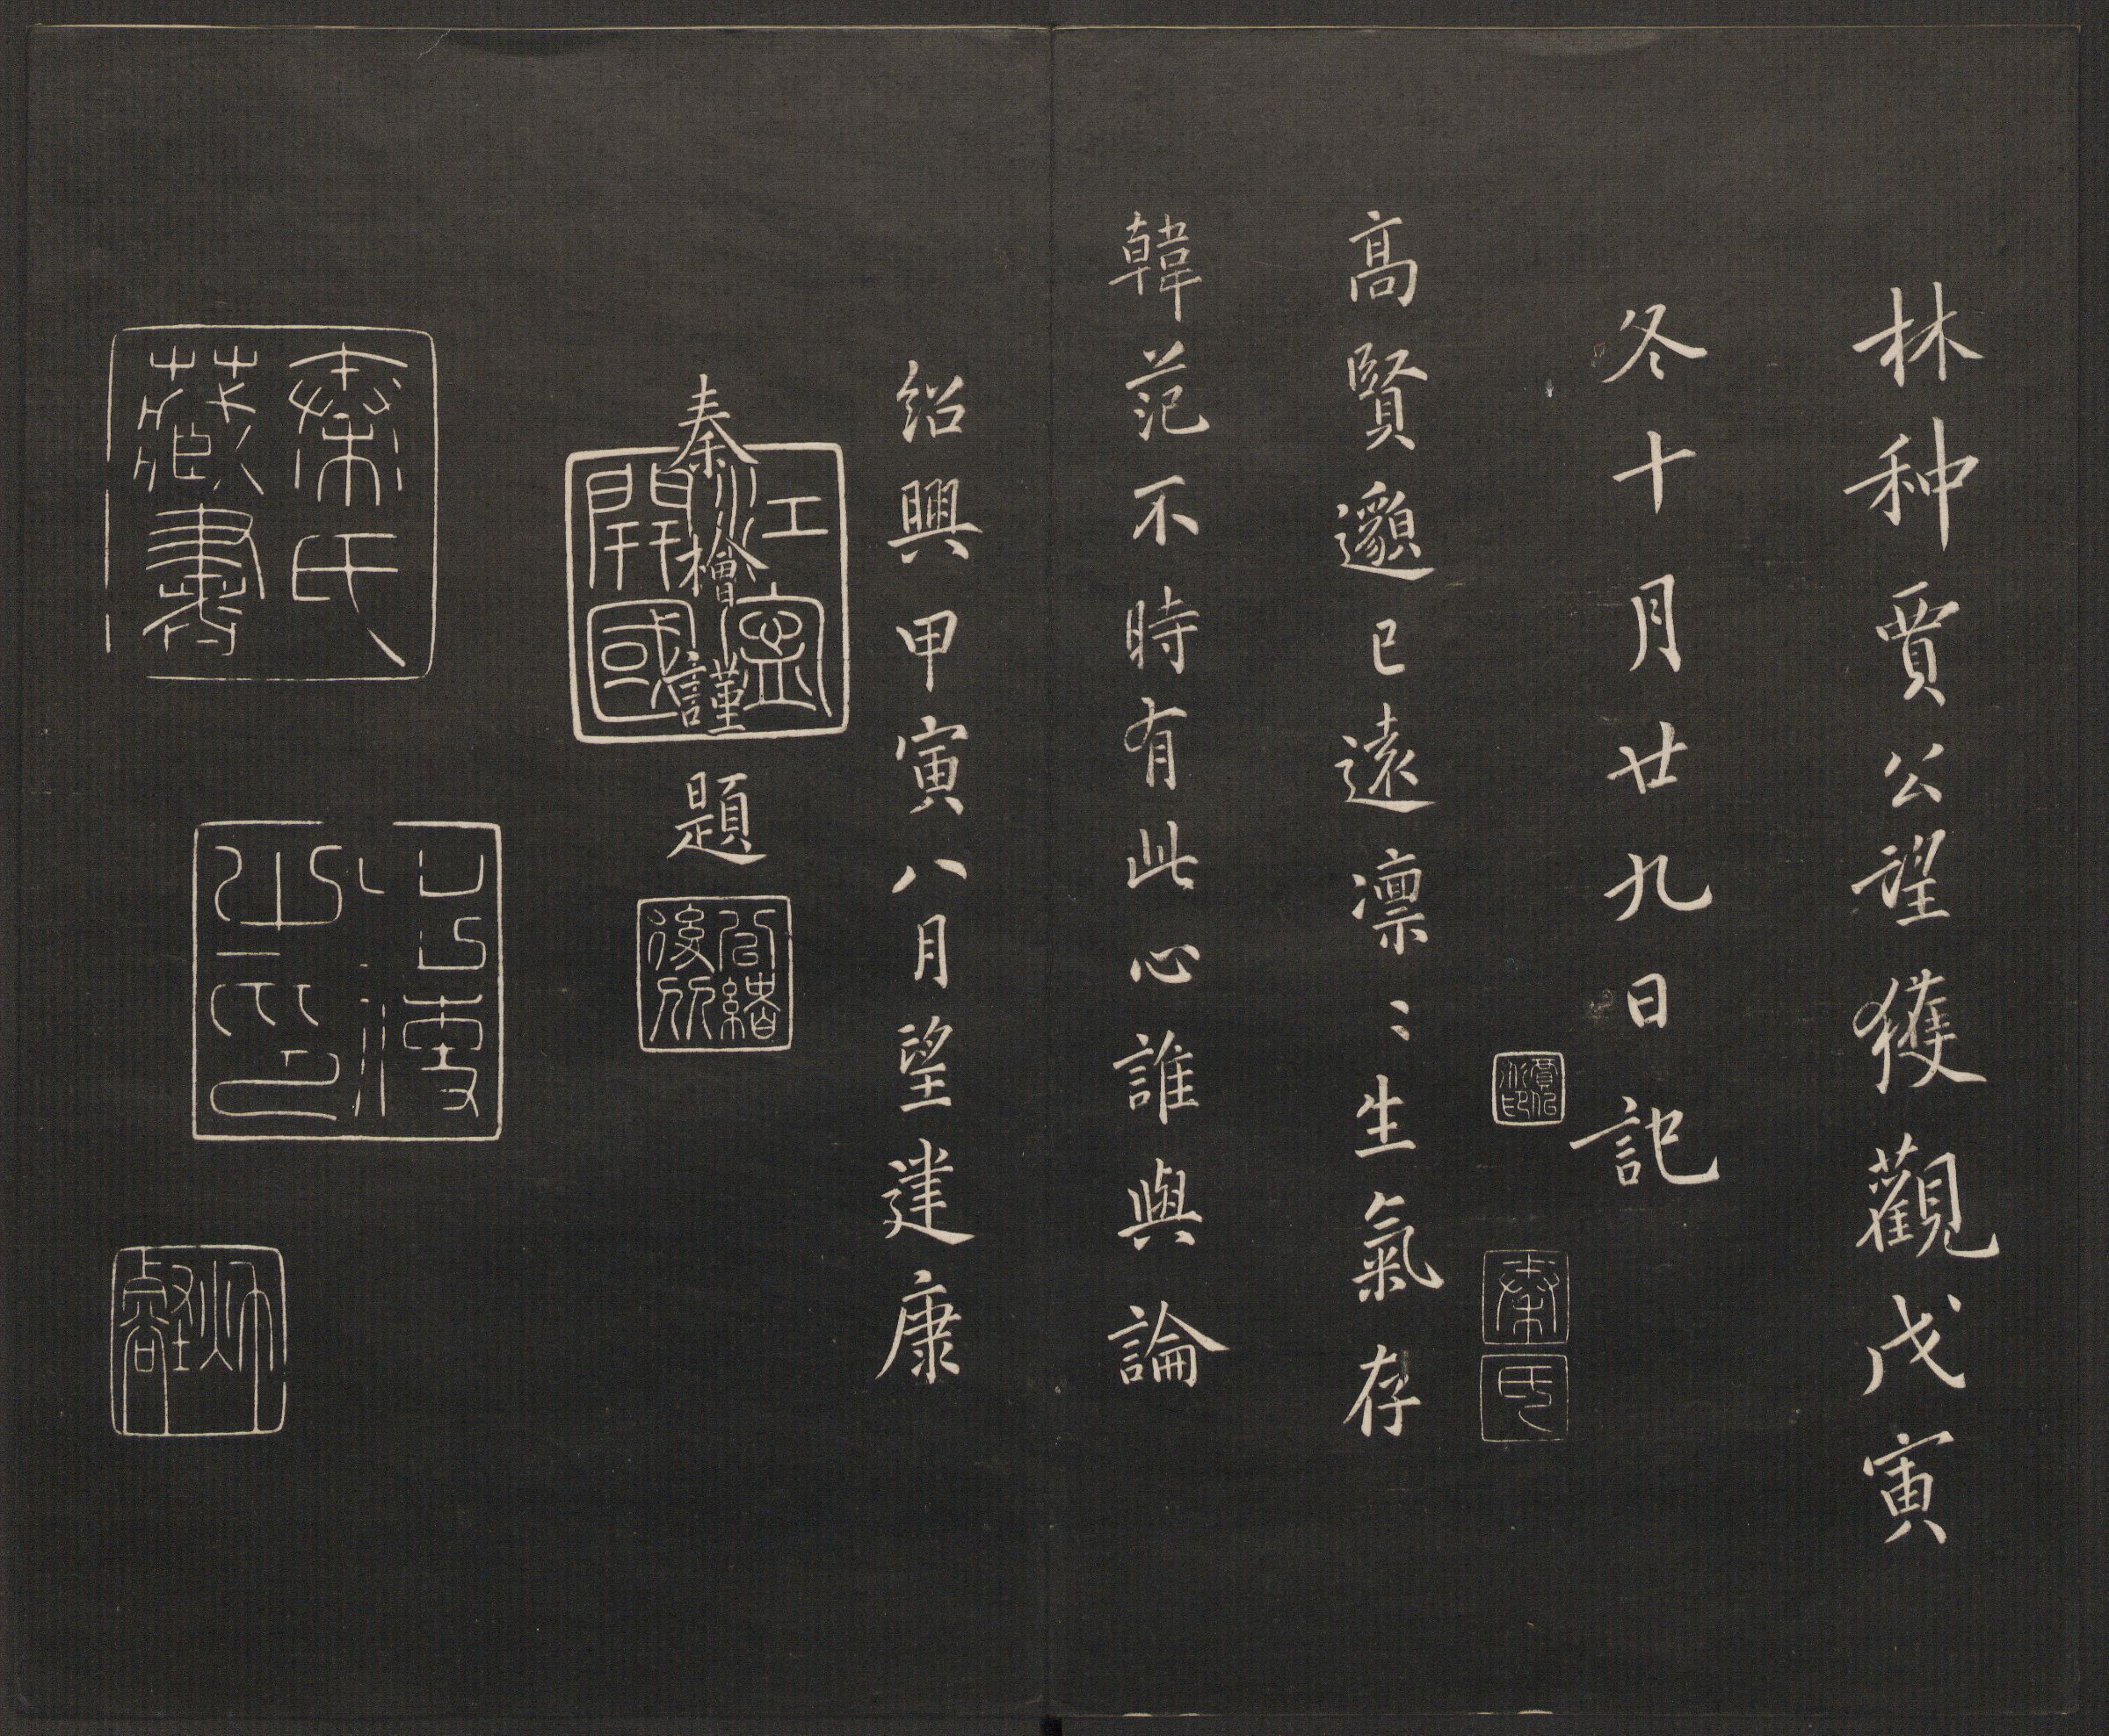 林种賈公望獲觀戊寅
冬十月廿九日記
秦氏
高賢邈已遠凛〻生氣存
韓范不時有此心誰與論
紹興甲寅八月望建康
秦檜謹題
江寧開國
秦氏藏書
之印